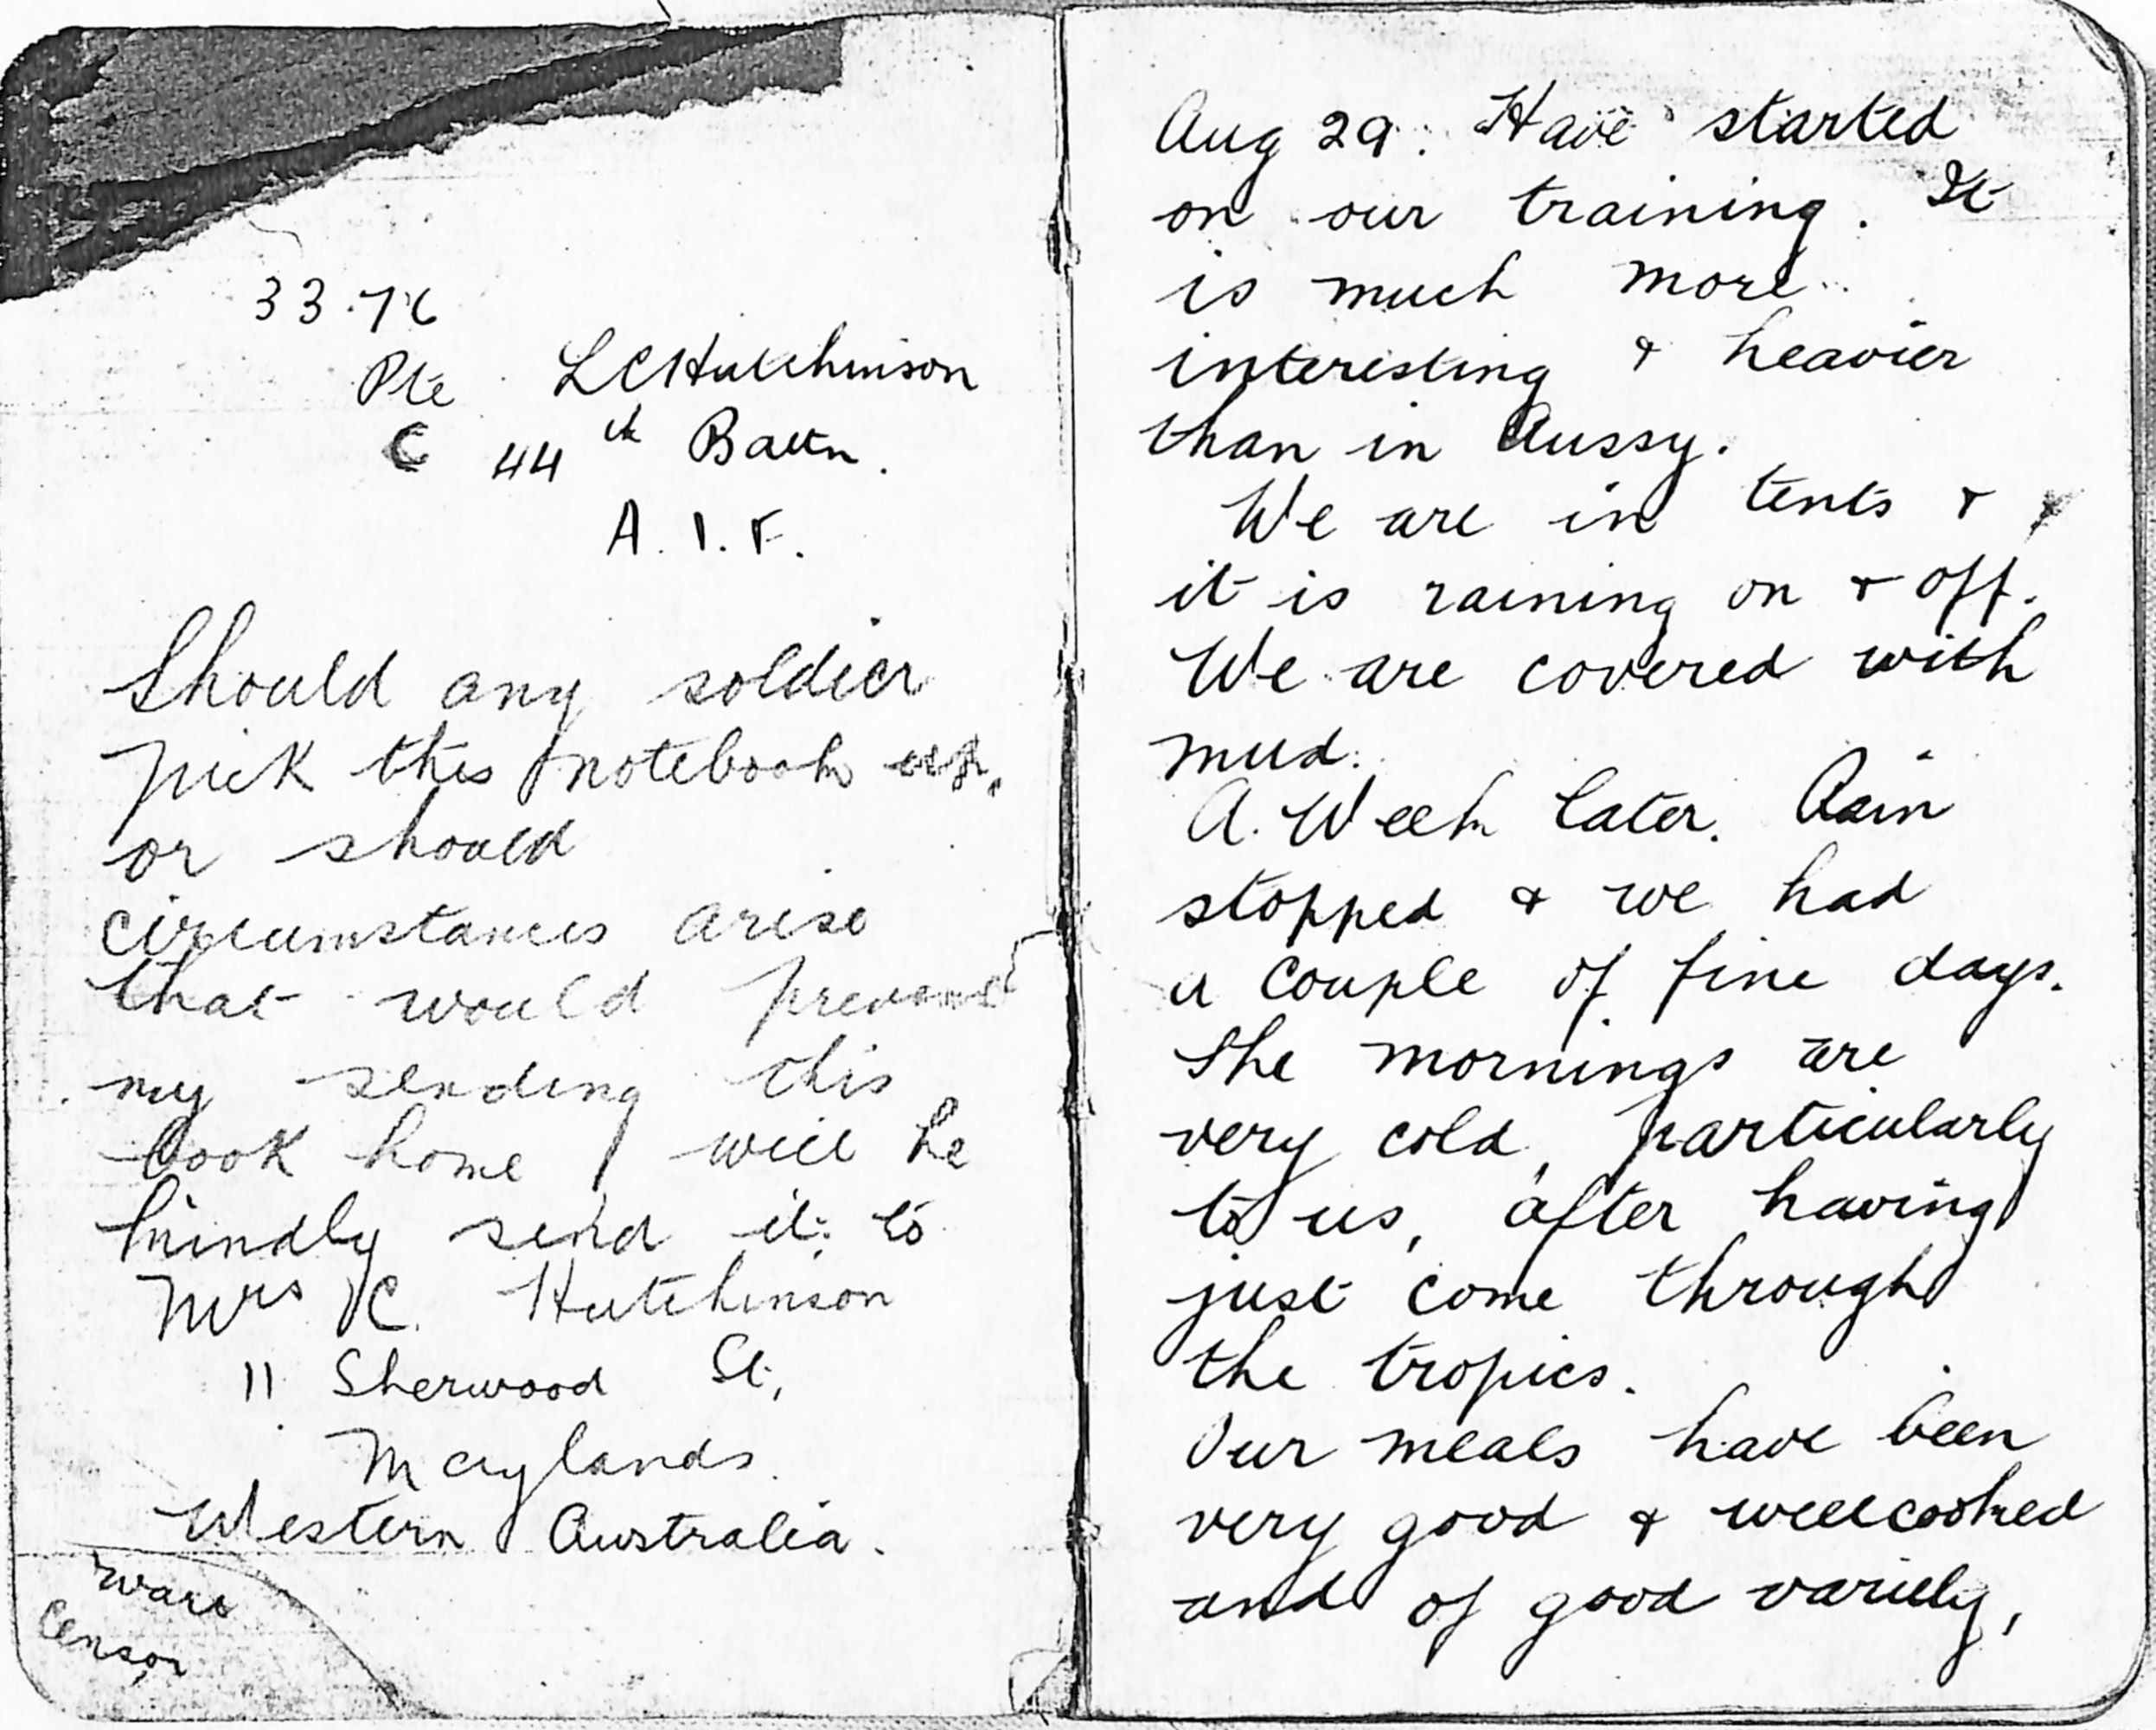 33.76
Pte L C Hutchinson
C 44th Battn.
A. I. F.
Should any soldier
pick this notebook up,
or should
circumstances arise
that would prevent
my sending this
book home will he
kindly send it to
Mrs C. Hutchinson
11 Sherwood St,
Maylands.
Western Australia.
Censor
Aug 29. Have started
on our training. It
is much more
interesting & heavier
than in Aussy.
We are in tents &
it is raining on & off.
We are covered with
mud.
A. Week later. Rain
stopped & we had
a couple of fine days.
The mornings are
very cold, particularly
to us, after having
just come through
the tropics.
Our meals have been
very good & wellcooked
and of good variety,